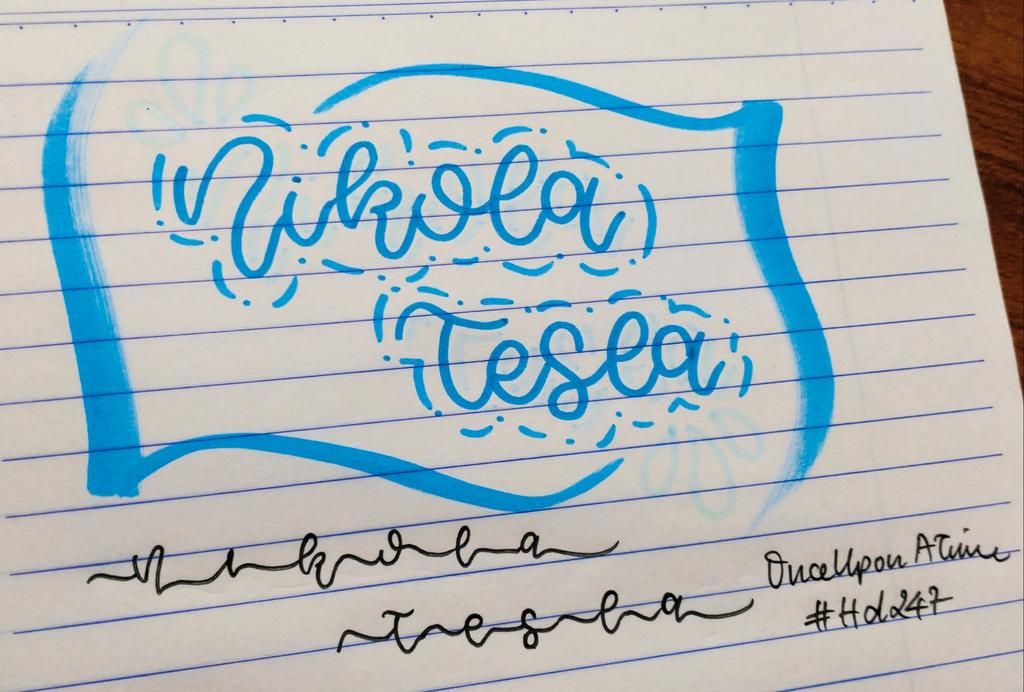 Nikola
Tesla
nikola
tesla
OnceUpon ATime
#Hd247